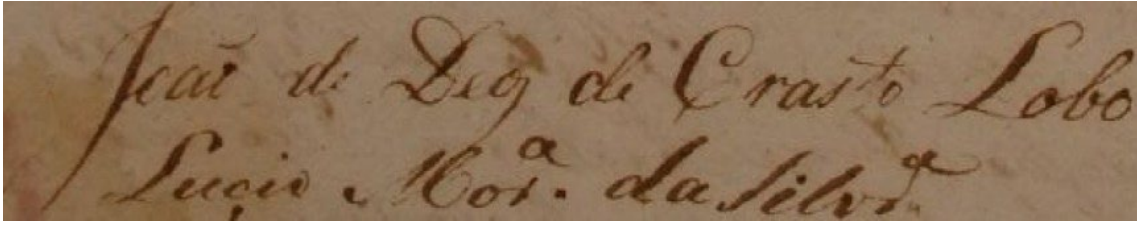 João de Deos de Crasto Lobo
Lucio Mor.ª da Silvr.ª